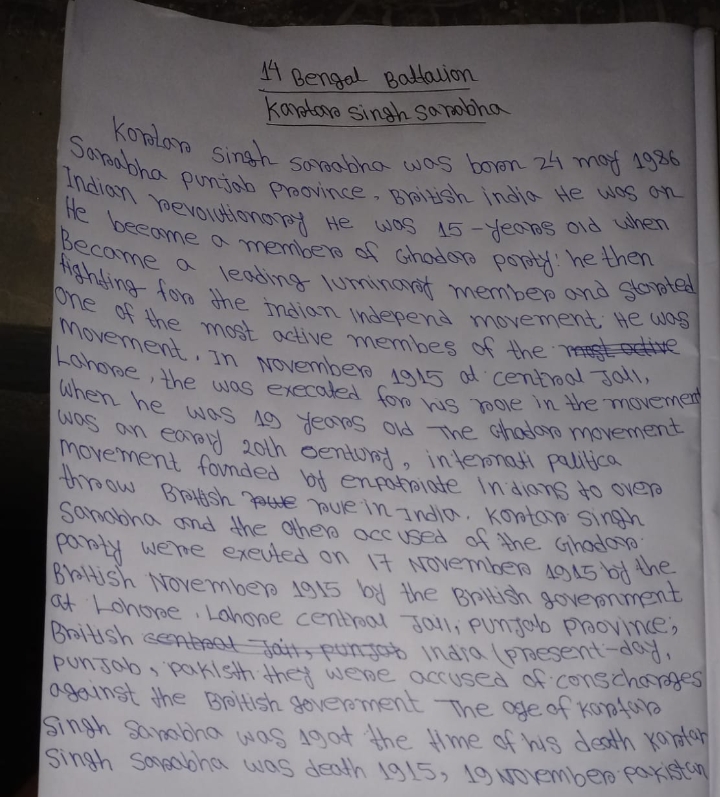 14 Bengal Battalion
Kartar Singh Sarabha
Kartar singh sarabha was born 24 may 1986
Sarabha punjab province, British india He was an
Indian revoutionary He was 15-years old when
He became a member of Ghadar party: he then
Became a leading luminary member and started
fighting for the indian independ movement. He was
one of the most active membes of the most active
movement. In November 1915 at central Jail,
Lahore, the was execated for his role in the movement
when he was 19 years old The Ghadar movement
was an eary 20th century, internati palitica
movement founded by enpatriate indians to over
throw British rule rule in India. Kartar Singh
Sarabha and the other accused of the Ghadar
party were exeuted on 17 November 1915 by the
British November 1915 by the British government
at Lahore. Lahore central Jail, punjab province,
British central Jail, punjab India (present-day,
punjab, pakisth they were accused of conscharges
against the British goverment The age of Kartar
Singh Sarabha was 19 at the time of his death Kartar
Singh Sarabha was death 1915, 19 November pakistan